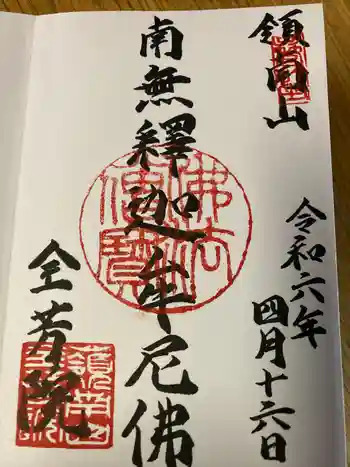 領南山
令和六年
四月十六日
南無釋迦牟尼佛
全芳院
佛法僧寶